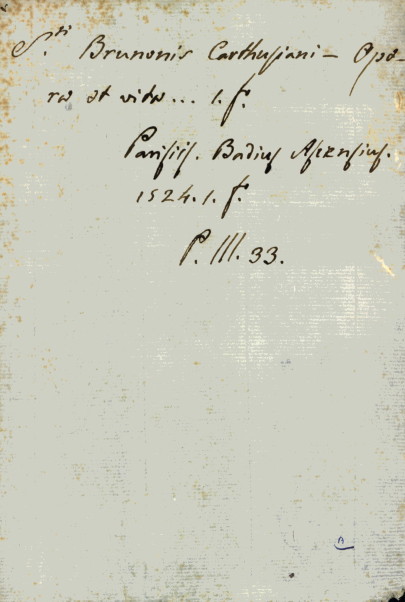 S.ti Brunonis Carthusiani – Ope-
ra et vita... 1. f.
Parisiis. Badius Ascensius.
1524. 1. f.
P. III. 33.
A